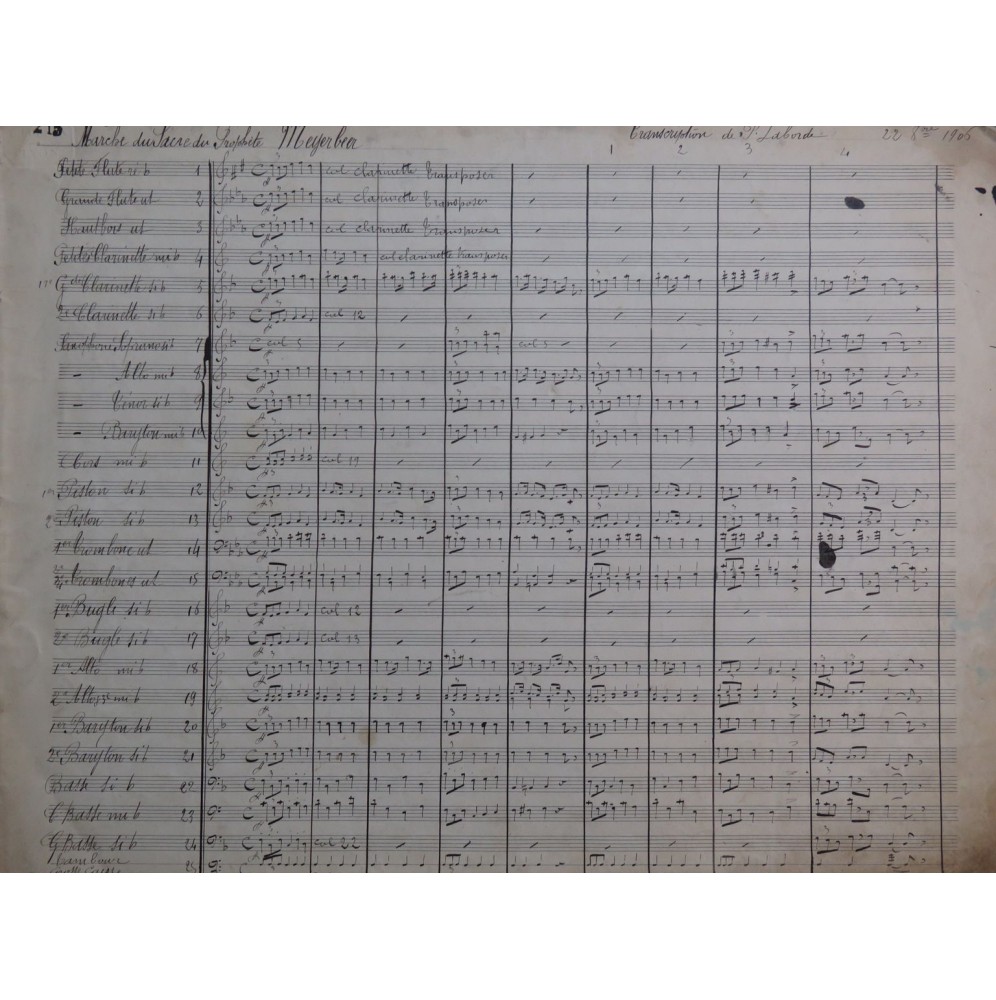 215 Marche du Sacre du Prophète Meyerbeer Transcription de P. Laborde 22 8bre 1905
1 2 3 4
Petite Flute ré b 1 col clarinette transposer
Grande Flute ut 2 col clarinette transposer
Hautbois ut 3 col clarinette transposer
Petite Clarinette mi b 4 col clarinette transposer
1re Gde Clarinette si b 5
2e Clarinette si b 6 col 12
Saxophone Soprano si b 7 col 5 col 5
- Alto mi b 8
- Ténor si b 9
- Baryton mi b 10
Cors mi b 11 col 19
1er Piston si b 12
2e Piston si b 13
1er Trombone ut 14
2e 3e Trombones ut 15
1er Bugle si b 16 col 12
2e Bugle si b 17 col 13
1er Alto mi b 18
2e Alto, 3e mi b 19
1er Baryton si b 20
2e Baryton si b 21
Basse si b 22
C Basse mi b 23
C Basse si b 24 col 22
Tambour
Grosse Caisse 25